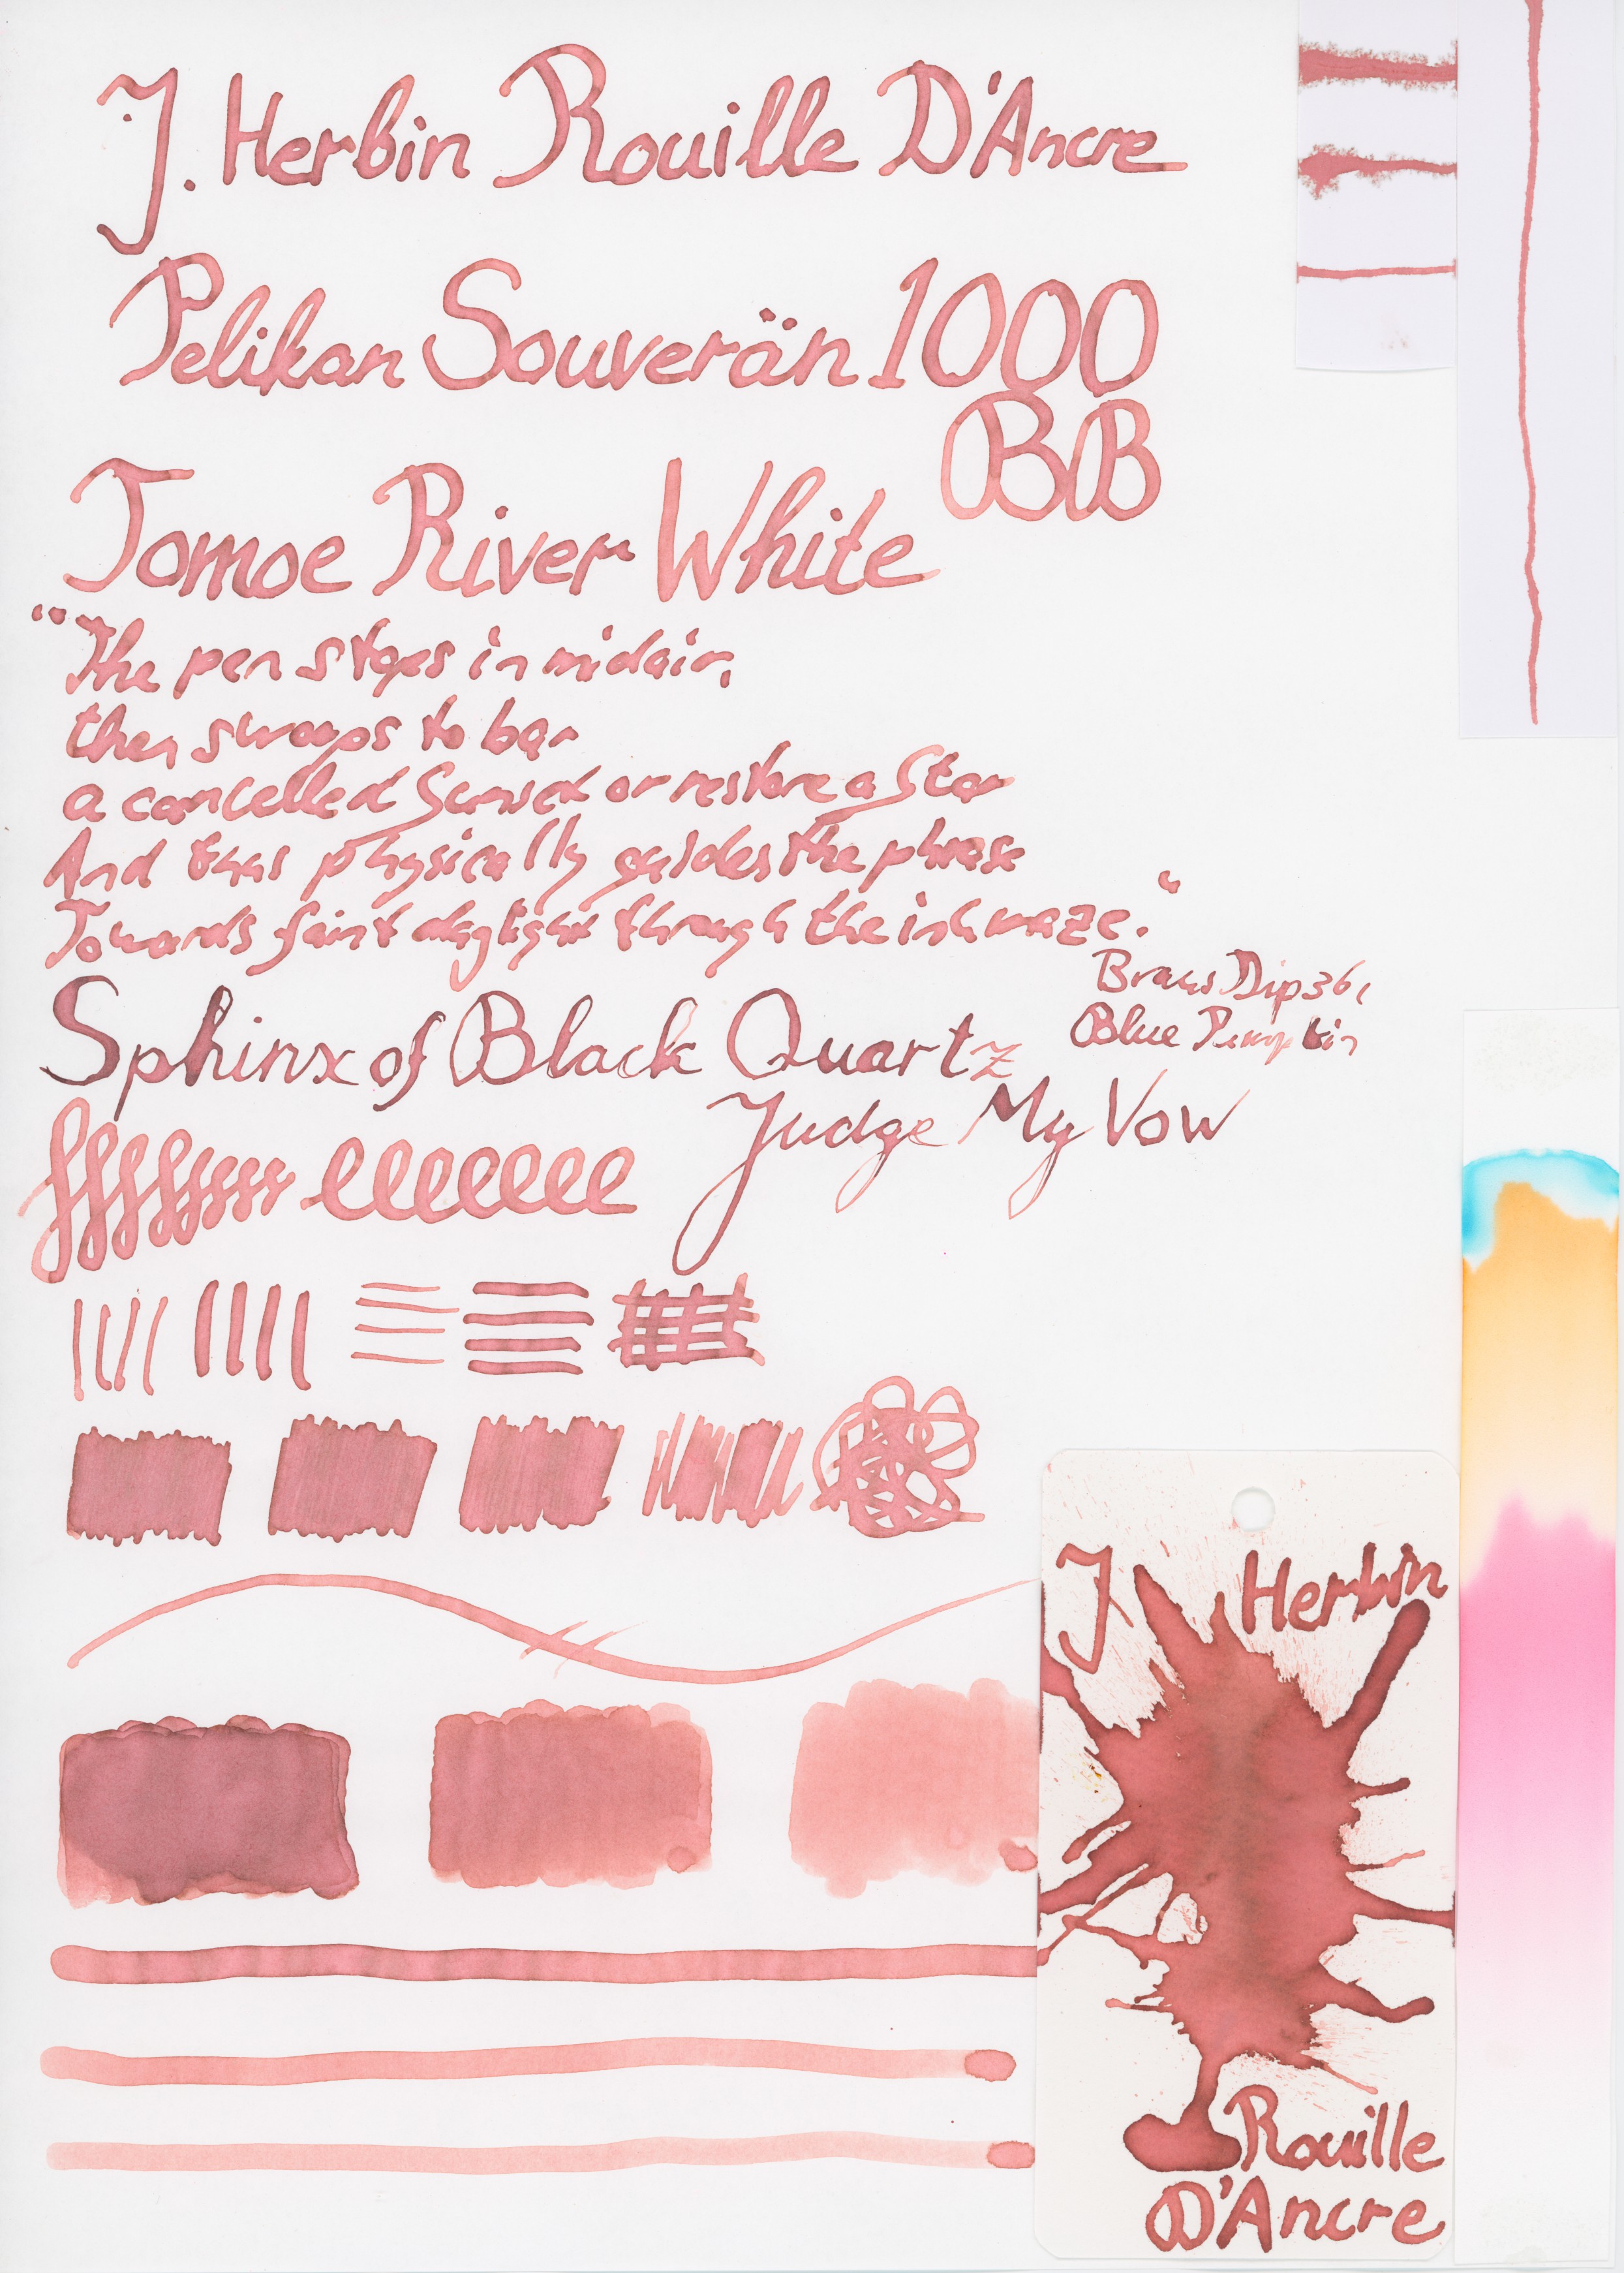 J. Herbin Rouille D'Ancre
Pelikan Souverän 1000
BB
Tomoe River White
"The pen stops in midair,
then swoops to bar
a cancelled Sunset or restore a Star
And thus physically guides the phrase
Towards faint daylight through the ink maze."
Braus Dip 361
Blue Pumpkin
Sphinx of Black Quartz
Judge My Vow
J Herbin
Rouille
D'Ancre